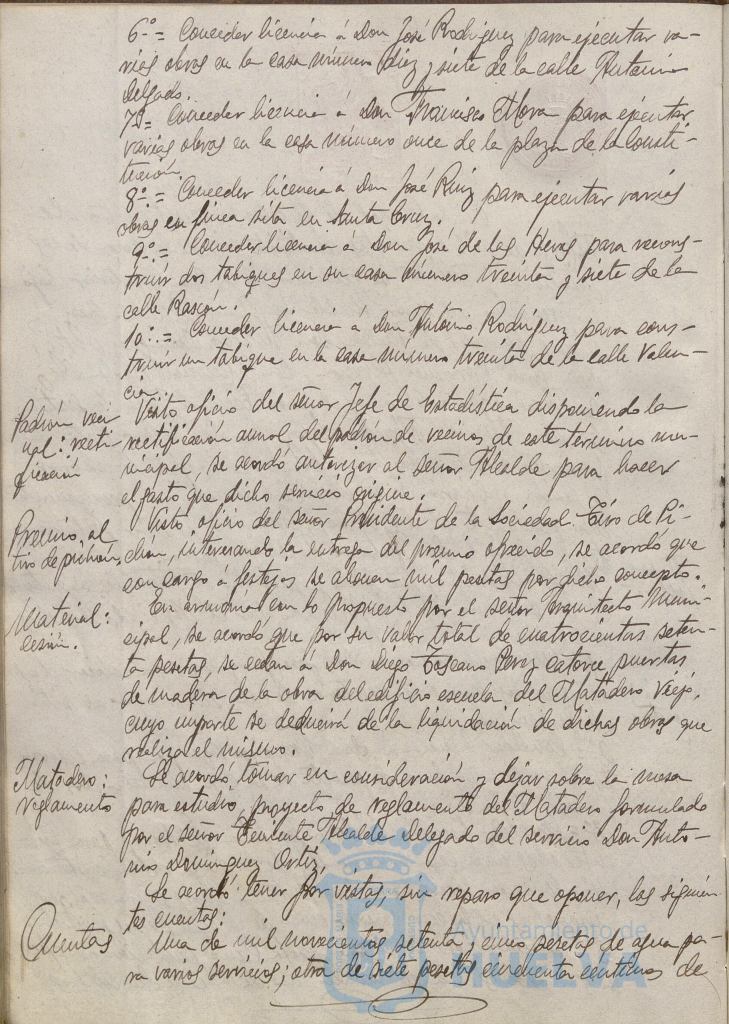 6º= Conceder licencia á Don José Rodríguez para ejecutar va-
rias obras en la casa número diez y siete de la calle Antonio
Delgado.
7º= Conceder licencia á Don Francisco Mora para ejecutar
varias obras en la casa número once de la plaza de la Consti-
tución.
8º.= Conceder licencia á Don José Ruiz para ejecutar varias
obras en finca sita en Santa Cruz.
9º.= Conceder licencia á Don José de las Heras para recons-
truir dos tabiques en su casa número treinta y siete de la
calle Rascón.
10º.= Conceder licencia á Don Antonio Rodríguez para cons-
truir un tabique en la casa número treinta de la calle Valen-
cia.
Padrón veci
nal: recti-
ficación
Visto oficio del señor Jefe de Estadística disponiendo la
rectificación anual del padrón de vecinos de este término mu-
nicipal, se acordó autorizar al señor Alcalde para hacer
el gasto que dicho servicio origine.
Premio al
tiro de pichón
Visto oficio del señor Presidente de la Sociedad Tiro de Pi-
chón, interesando la entrega del premio ofrecido, se acordó que
con cargo á festejos se abonen mil pesetas por dicho concepto.
Material:
cesión.
En armonía con lo propuesto por el señor Arquitecto Muni-
cipal, se acordó que por su valor total de cuatrocientas seten-
ta pesetas, se cedan á Don Diego Toscano Perez catorce puertas
de madera de la obra del edificio escuela del Matadero Viejo,
cuyo importe se deducirá de la liquidación de dichas obras que
realiza el mismo.
Matadero:
reglamento
Se acordó tomar en consideración y dejar sobre la mesa
para estudio, proyecto de reglamento del Matadero formulado
por el señor Teniente Alcalde Delegado del servicio Don Anto-
nio Domínguez Ortiz.
Se acordó tener por vistas, sin reparo que oponer, las siguien-
tes cuentas:
Cuentas
Una de mil novecientas setenta y cinco pesetas de agua pa-
ra varios servicios; otra de siete pesetas cincuenta centimos de
Ayuntamiento de
HUELVA